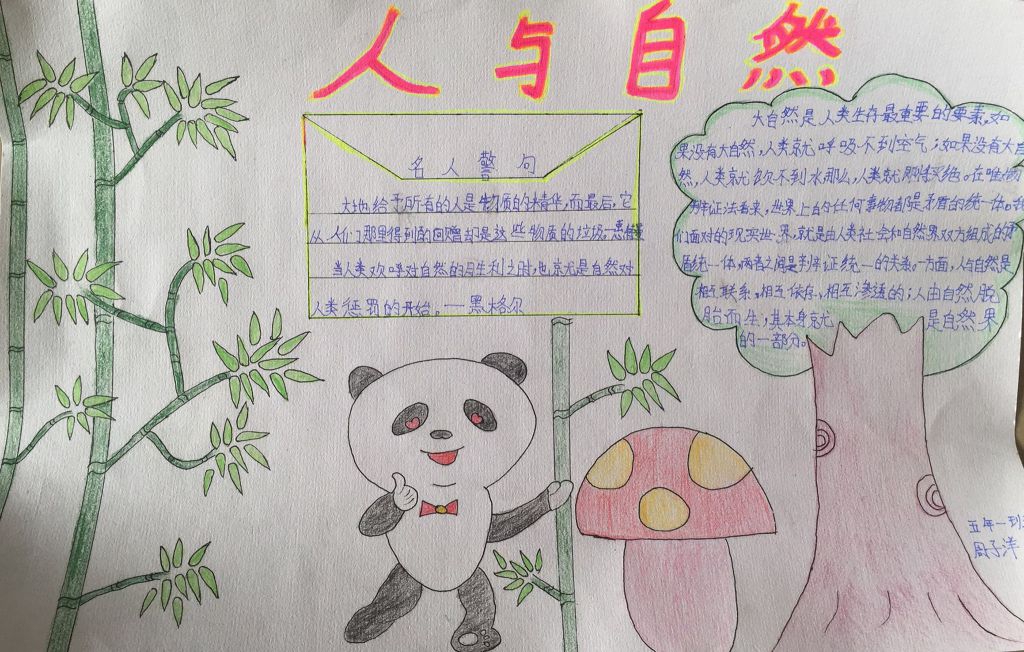 人与自然
名人警句
大地给予所有的人是物质的精华,而最后,它
从人们那里得到的回赠却是这些物质的垃圾—惠特曼
当人类欢呼对自然的胜利之时,也就是自然对
人类惩罚的开始。——黑格尔
大自然是人类生存最重要的要素,如
果没有大自然,人类就呼吸不到空气;如果没有大自
然,人类就饮不到水那么,人类就会灭绝。在唯物
辩证法看来,世界上的任何事物都是矛盾的统一体。我
们面对的现实世界,就是由人类社会和自然界双方组成的矛
盾统一体,两者之间是辩证统一的关系。一方面,人与自然是
相互联系,相互依存,相互渗透的;人由自然脱
胎而生,其本身就是自然界
的一部分。
五年一
周子洋